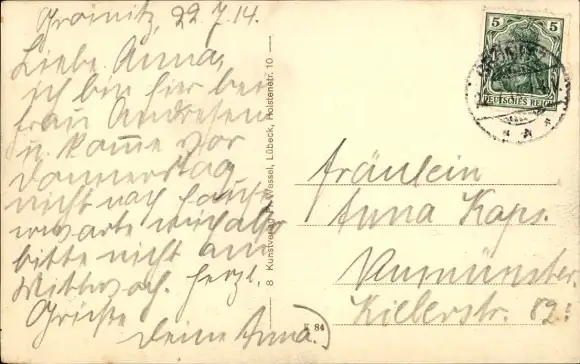 Grömitz, 22.7.14.
Liebe Anna,
ich bin hier bei
Frau Andresen
u. komme vor
Donnerstag
nicht nach Hause
erwarte mich also
bitte nicht am
Mittwoch. Herzl.
Grüße
Deine Anna.
8 Kunstverlag Wessel, Lübeck, Holstenstr. 10
K 84
5 5
DEUTSCHES REICH
Fräulein
Anna Kaps.
Neumünster.
Kielerstr. 82.